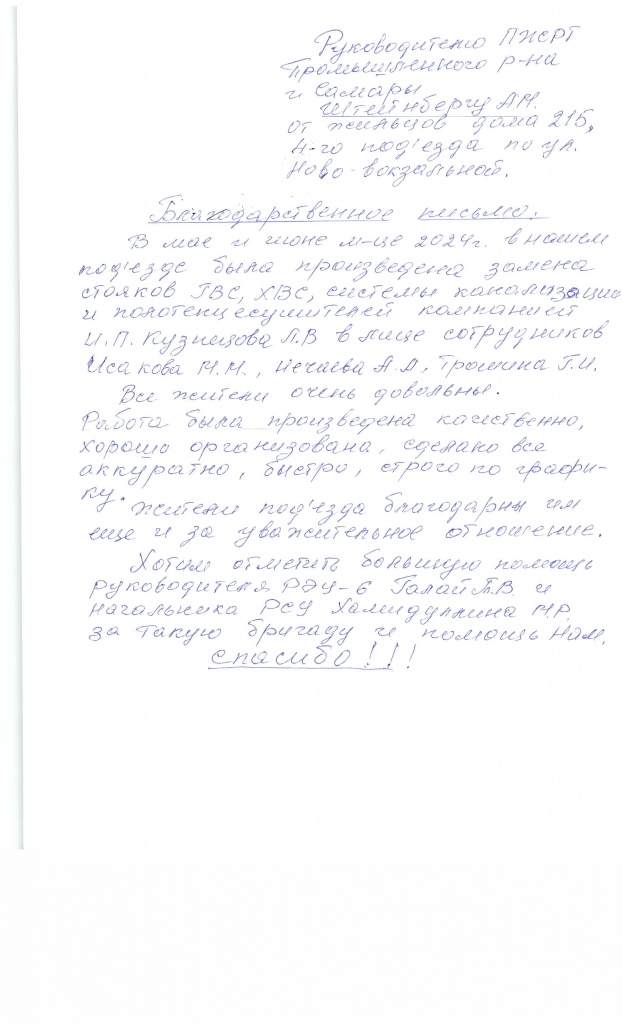 Руководителю ПЖРТ
Промышленного р-на
г. Самары
Штейнбергу А.М.
от жильцов дома 215,
4-го под'езда по ул.
Ново-вокзальной.
Благодарственное письмо.
В мае и июне м-це 2024г. в нашем
под'езде была произведена замена
стояков ГВС, ХВС, системы канализации
и полотенцесушителей компанией
И.П. Кузнецова Л.В в лице сотрудников
Исакова М.М., Нечаева А.А, Тромина Г.И.
Все жители очень довольны.
Работа была произведена качественно,
хорошо организована, сделано все
аккуратно, быстро, строго по графи-
ку.
Жители под'езда благодарны им
еще и за уважительное отношение.
Хотим отметить большую помощь
руководителя РЭУ-6 Галай Т.В. и
начальника РСУ Хамидуллина М.Р.
за такую бригаду и помощь нам.
спасибо!!!